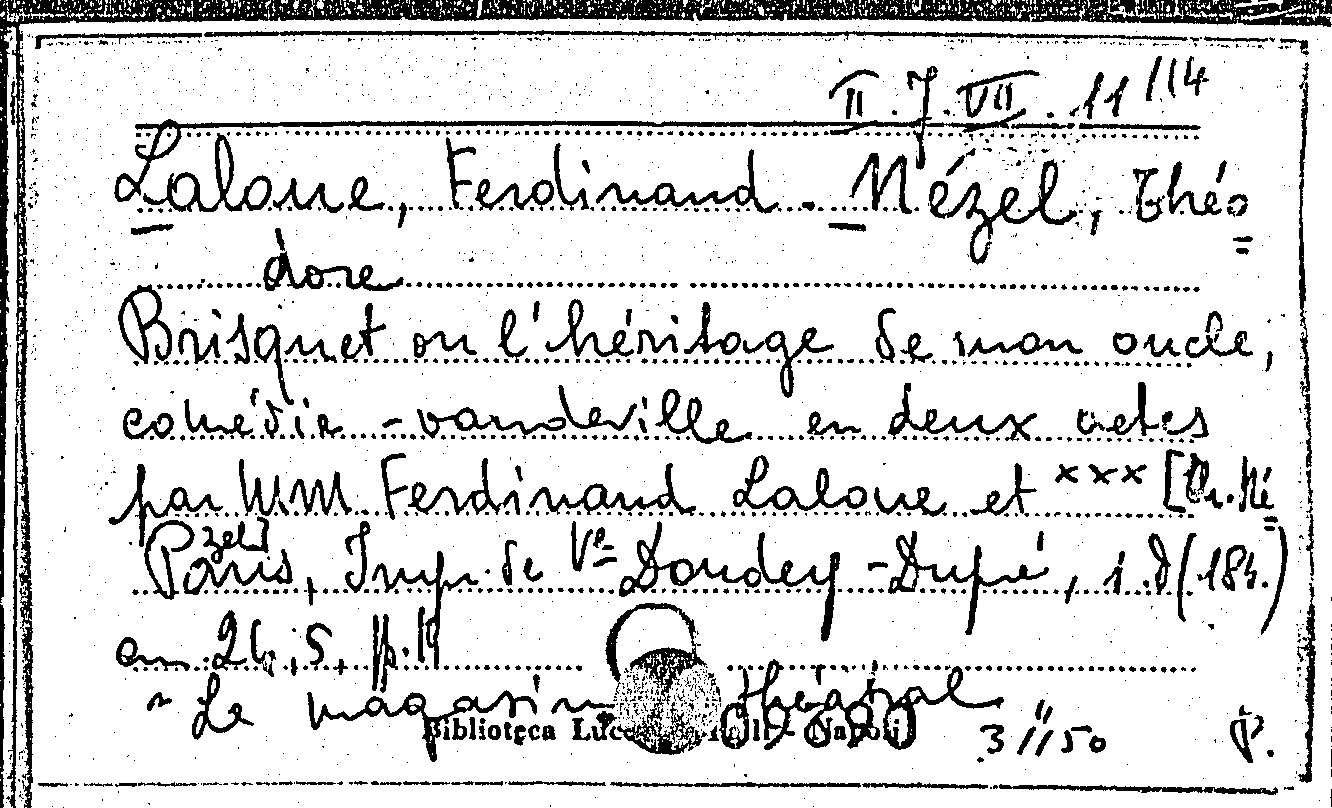 II.J.VII.11/14
Laloue, Ferdinand - Nézel, Théo=
dore
Brisquet ou l'héritage de mon oncle,
comédie-vaudeville en deux actes
par MM Ferdinand Laloue et xxx [Th. Né=
zel]
Paris, Imp. de Ve Dondey-Dupré, s.d (183.)
cm 26,5, pp.19
"Le magasin théatral
Biblioteca Napoli
3//50 P.